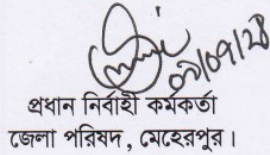 ০৮/০৭/২৪
প্রধান নির্বাহী কর্মকর্তা
জেলা পরিষদ, মেহেরপুর।